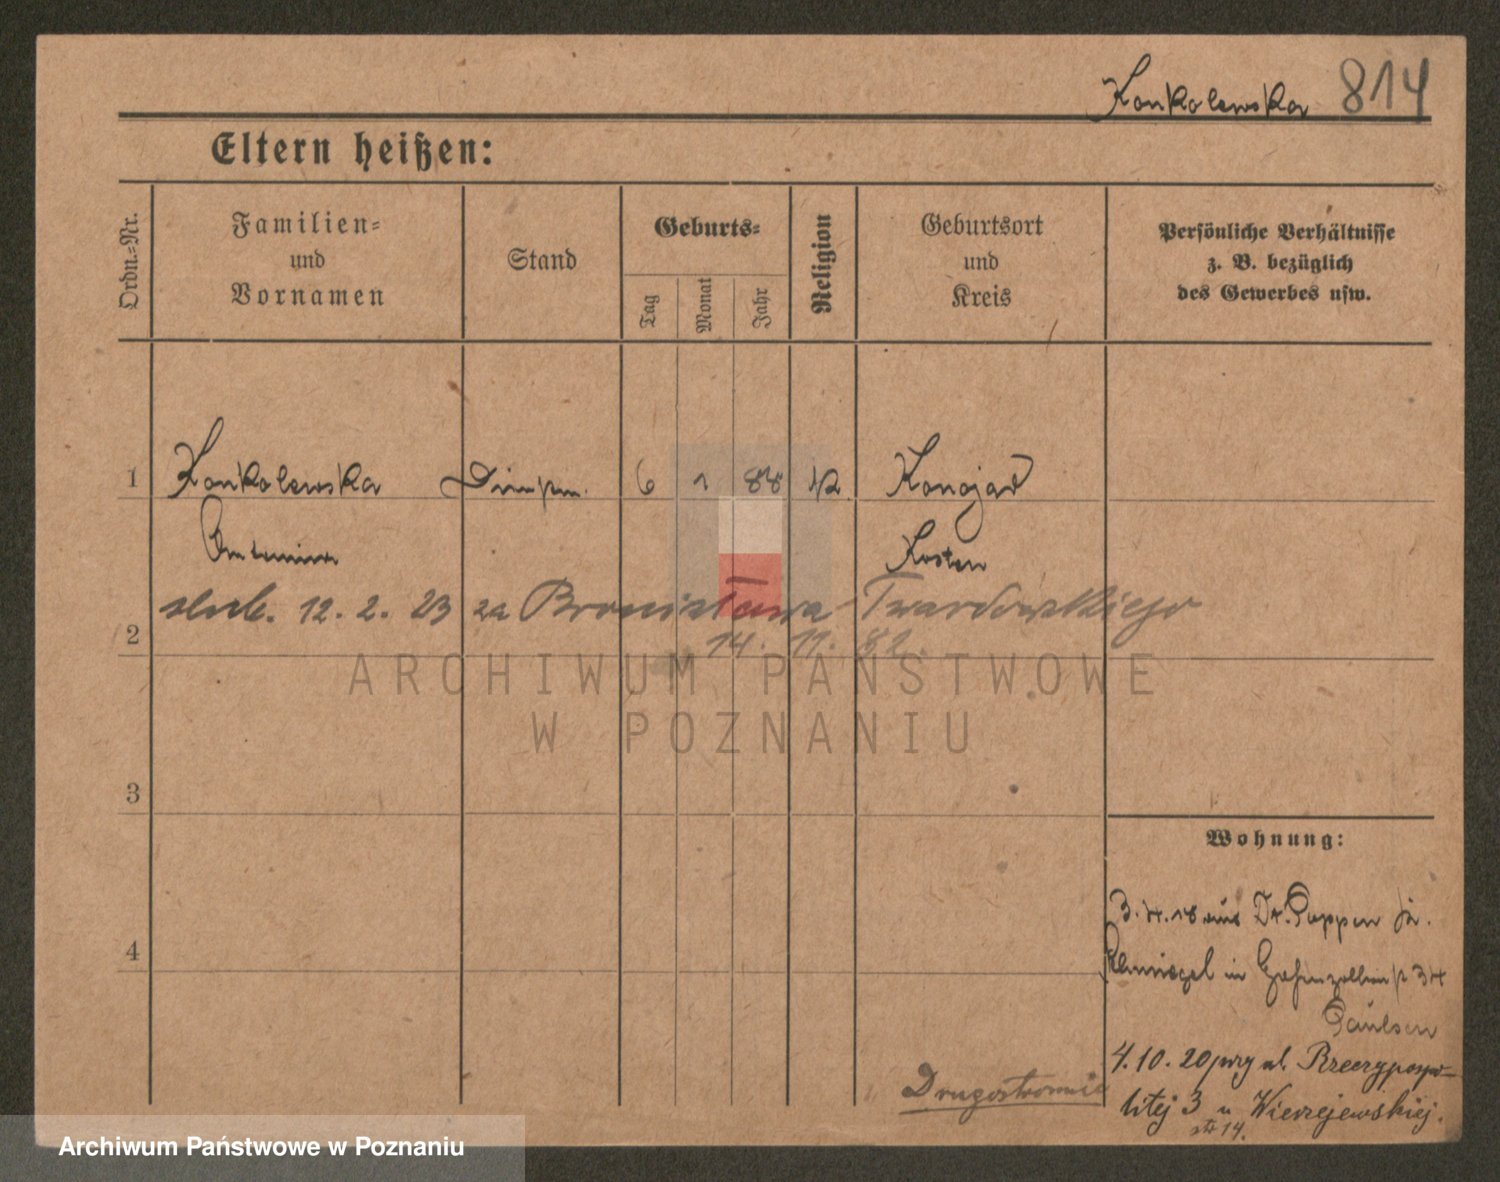 Konkolewska 814
Eltern heißen:
Ordn.-Nr.
Familien-
und
Vornamen
Stand
Geburts-
Tag
Monat
Jahr
Religion
Geburtsort
und
Kreis
Persönliche Verhältnisse
z. B. bezüglich
des Gewerbes usw.
1 Konkolewska 6 1 88 k Konojad
Antonina Kosten
ślub. 12. 2. 23 za Bronisława Twardowskiego
2 14. 11. 82.
ARCHIWUM PAŃSTWOWE
W POZNANIU
3
Wohnung:
3. 4. 18 aus
4
in 34
Paulsen
4. 10. 20 przy ul. Rzeczypospo-
Drugostronnie
litej 3 u Wierzejewskiej.
str 14.
Archiwum Państwowe w Poznaniu